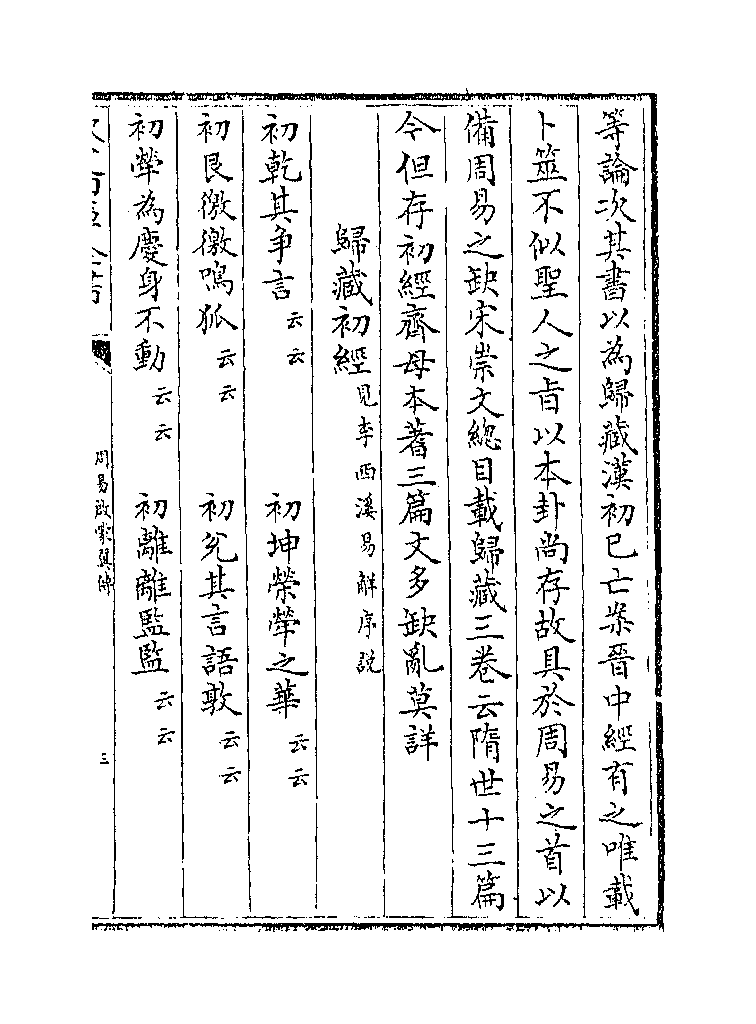 等論次其書以為歸藏漢初已亡案晉中經有之唯載
卜筮不似聖人之旨以本卦尚存故具於周易之首以
備周易之缺宋崇文總目載歸藏三卷云隋世十三篇
今但存初經齊母本蓍三篇文多缺亂莫詳
歸藏初經見李西溪易解序説
初乾其争言云云 初坤榮犖之華云云
初艮徼徼鳴狐云云 初兊其言語敦云云
初犖為慶身不動云云 初離離監監云云
周易啟蒙翼傳 三